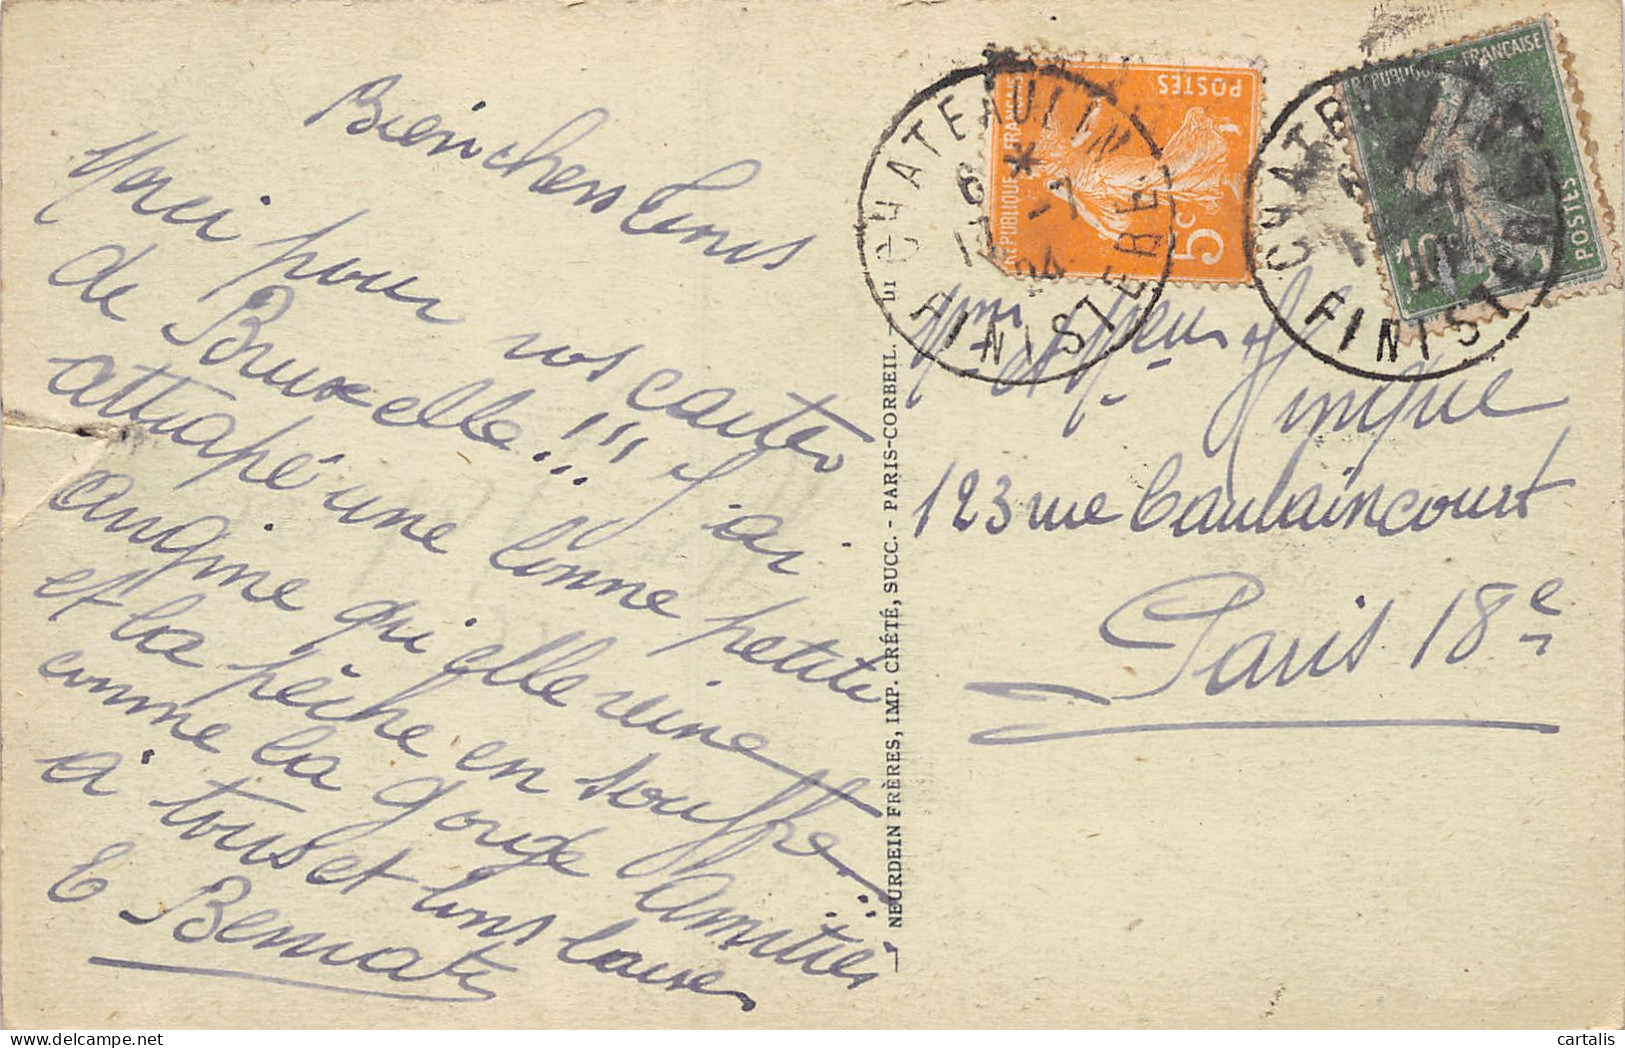 Bien chers
Merci pour vos cartes
de Bruxelle!!! J'ai
attrapé une bonne petite
angine qui elle
et la pêche en souffre...
comme la gorge Amitiés
à tous et bons baisers
E
CHATEAULIN
6 * -7
FINISTERE
REPUBLIQUE FRANÇAISE
POSTES
5c
CHATEAULIN
FINISTERE
REPUBLIQUE FRANÇAISE
POSTES
10c
Mme et Mr
123 rue Caulaincourt
Paris 18e
NEURDEIN FRÈRES, IMP. CRÉTÉ, SUCC. - PARIS-CORBEIL. - DI
cartalis